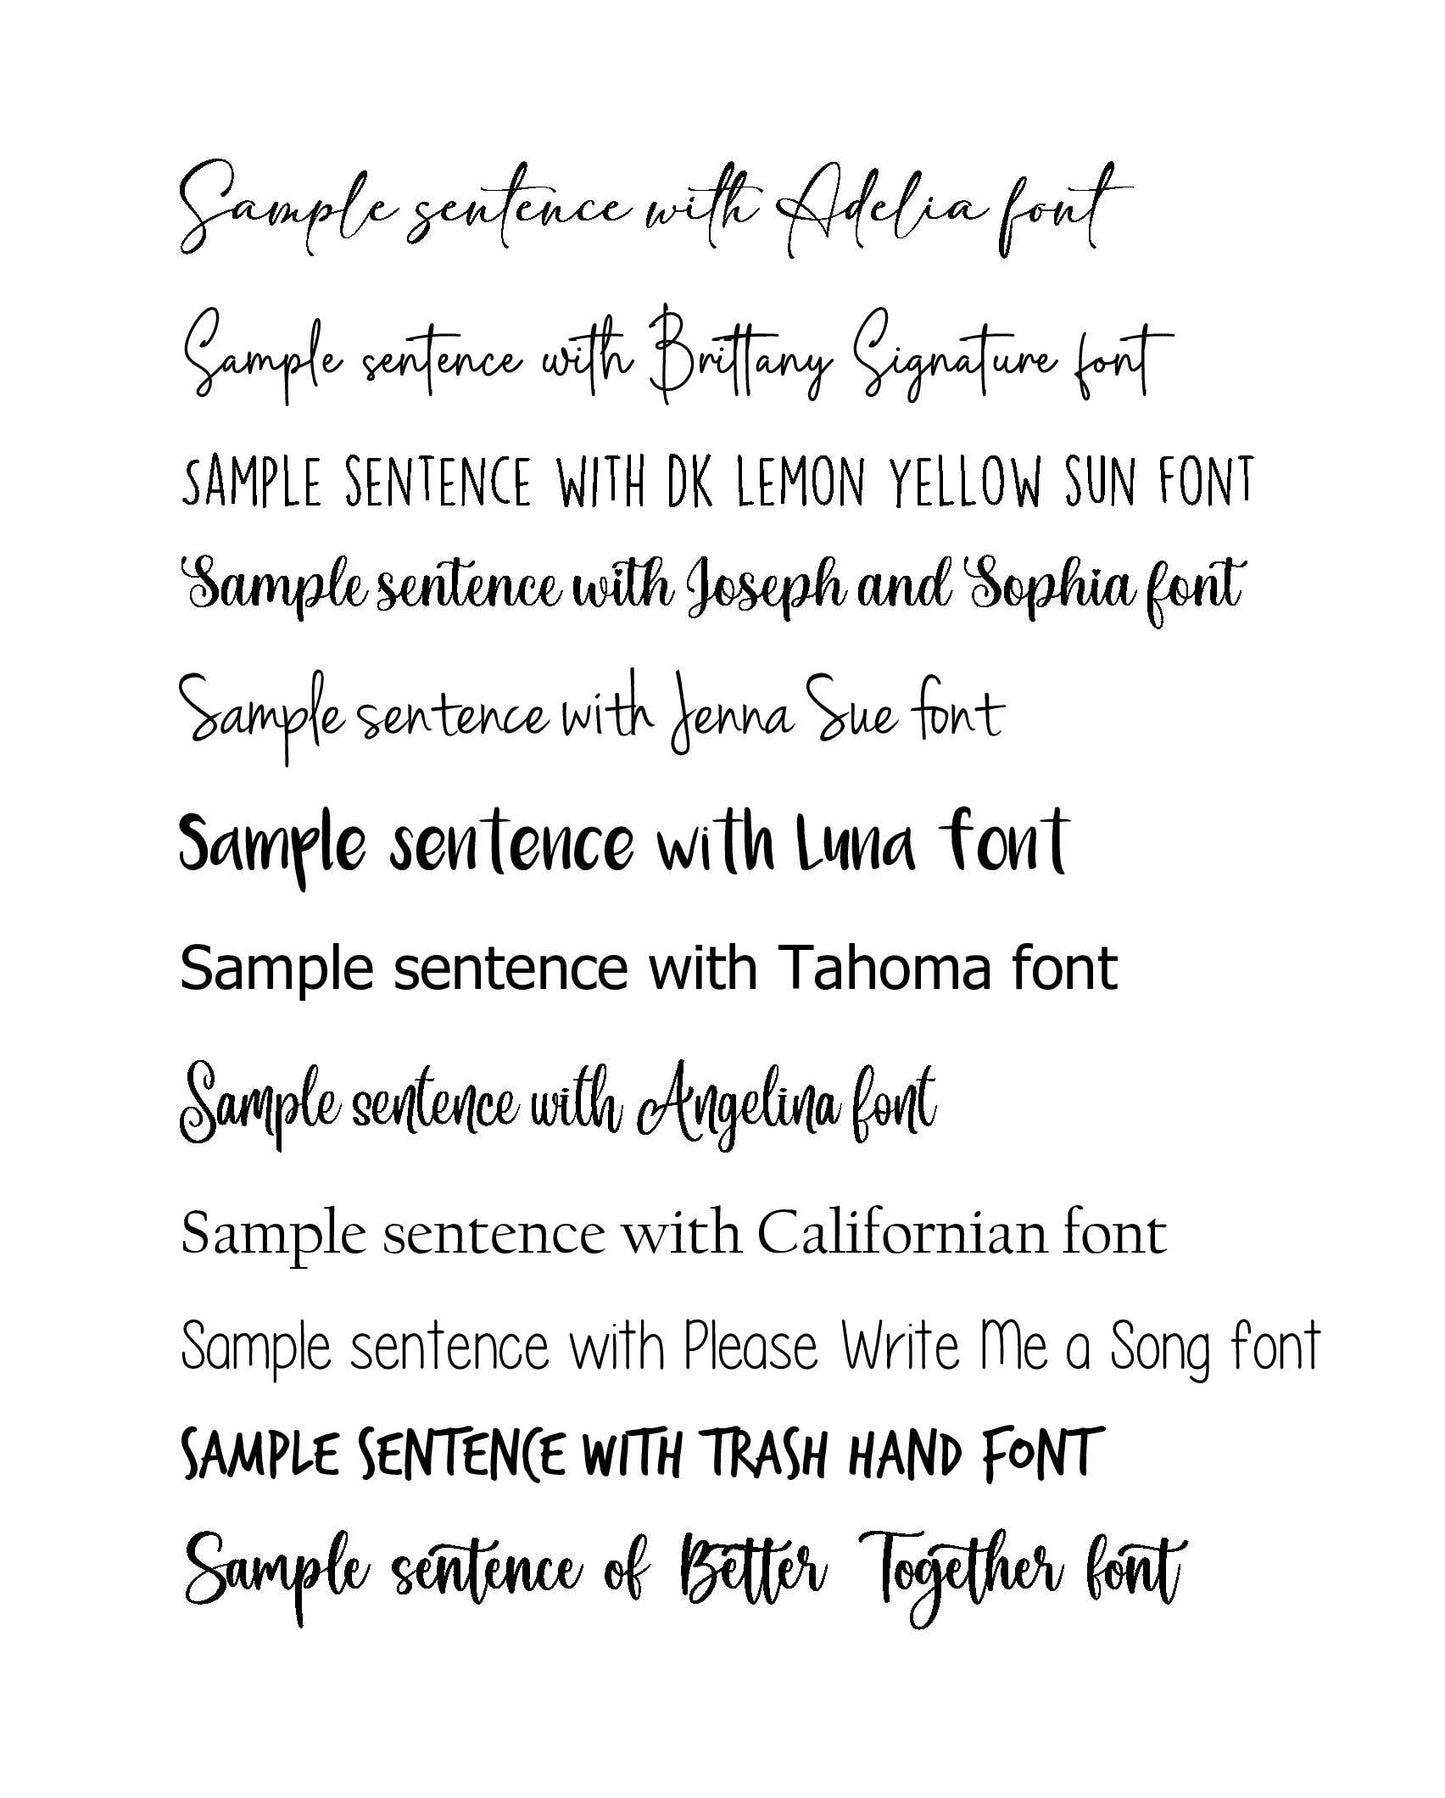 Sample sentence with Adelia font
Sample sentence with Brittany Signature font
SAMPLE SENTENCE WITH DK LEMON YELLOW SUN FONT
Sample sentence with Joseph and Sophia font
Sample sentence with Jenna Sue font
Sample sentence with Luna font
Sample sentence with Tahoma font
Sample sentence with Angelina font
Sample sentence with Californian font
Sample sentence with Please Write Me a Song font
SAMPLE SENTENCE WITH TRASH HAND FONT
Sample sentence of Better Together font